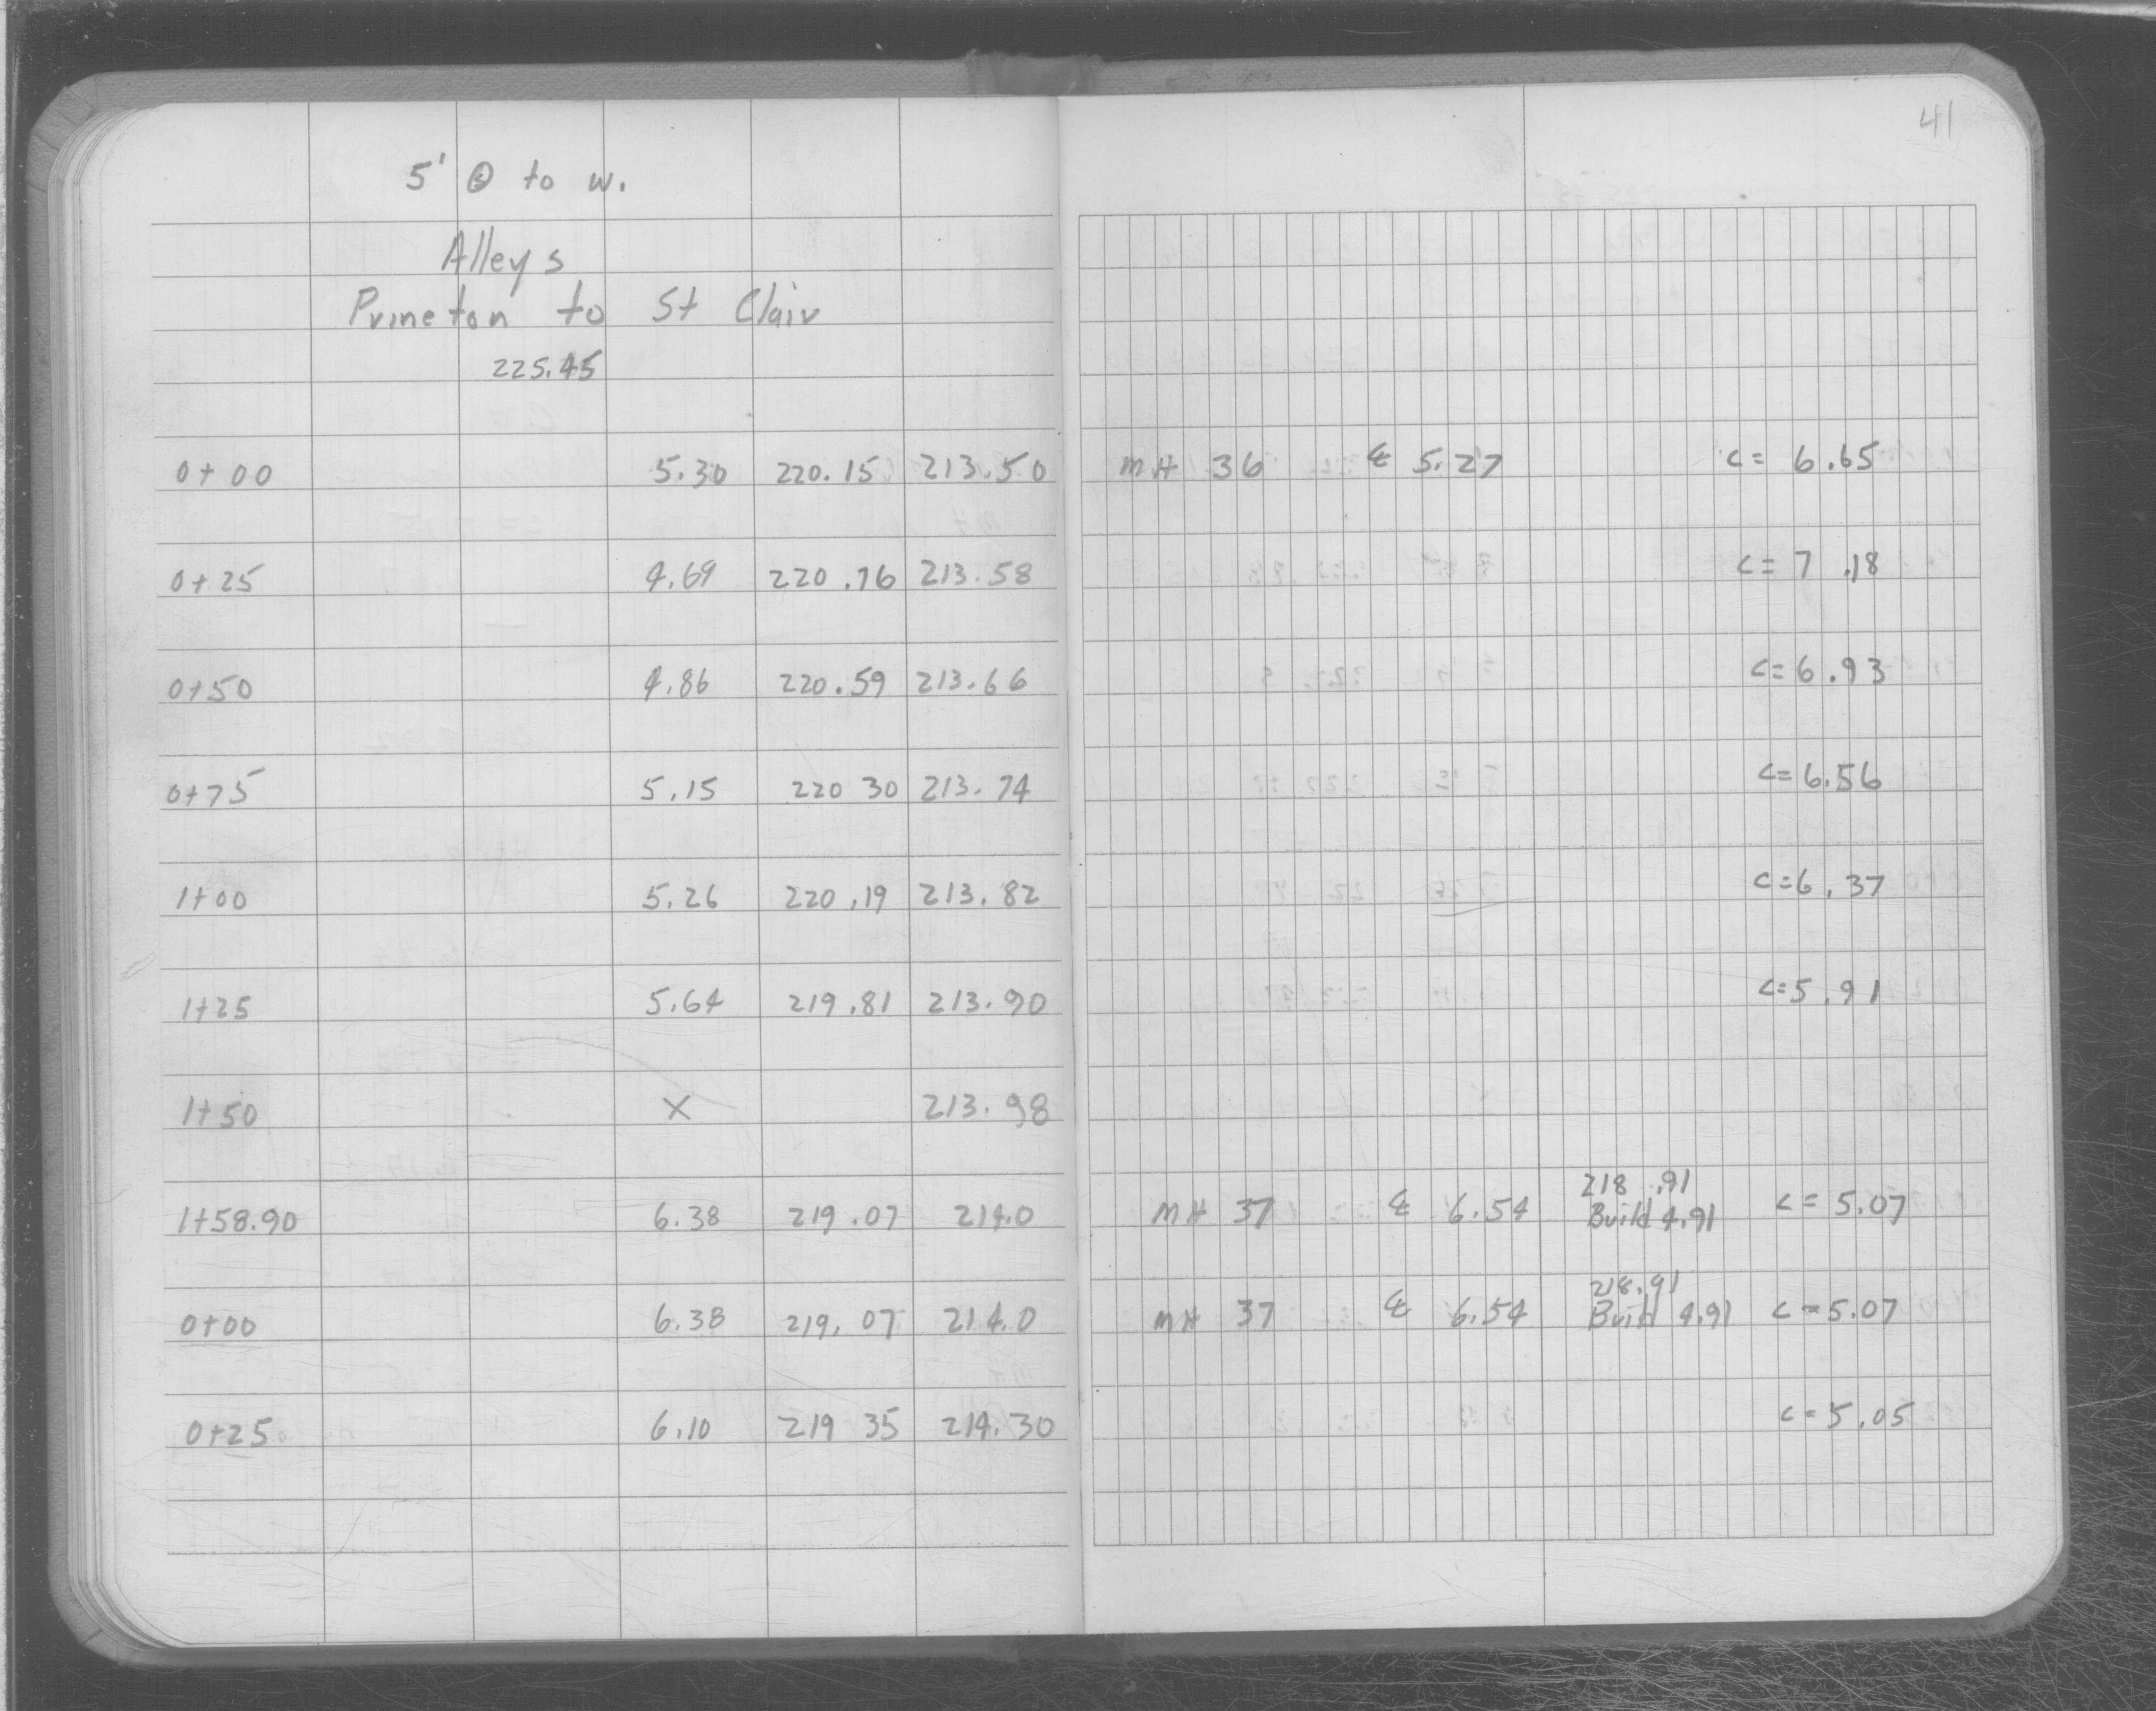 41
5' @ to W.
Alleys
Prineton to St Clair
225.45
0+00 5.30 220.15 213.50 MH 36 ℄ 5.27 C= 6.65
0+25 4.69 220.76 213.58 C= 7.18
0+50 4.86 220.59 213.66 C=6.93
0+75 5.15 220 30 213.74 C=6.56
1+00 5.26 220.19 213.82 C=6.37
1+25 5.64 219.81 213.90 C=5.91
1+50 X 213.98
218.91
1+58.90 6.38 219.07 214.0 MH 37 ℄ 6.54 Build 4.91 C= 5.07
218.91
0+00 6.38 219.07 214.0 MH 37 ℄ 6.54 Build 4.91 C=5.07
0+25 6.10 219 35 214.30 C=5.05